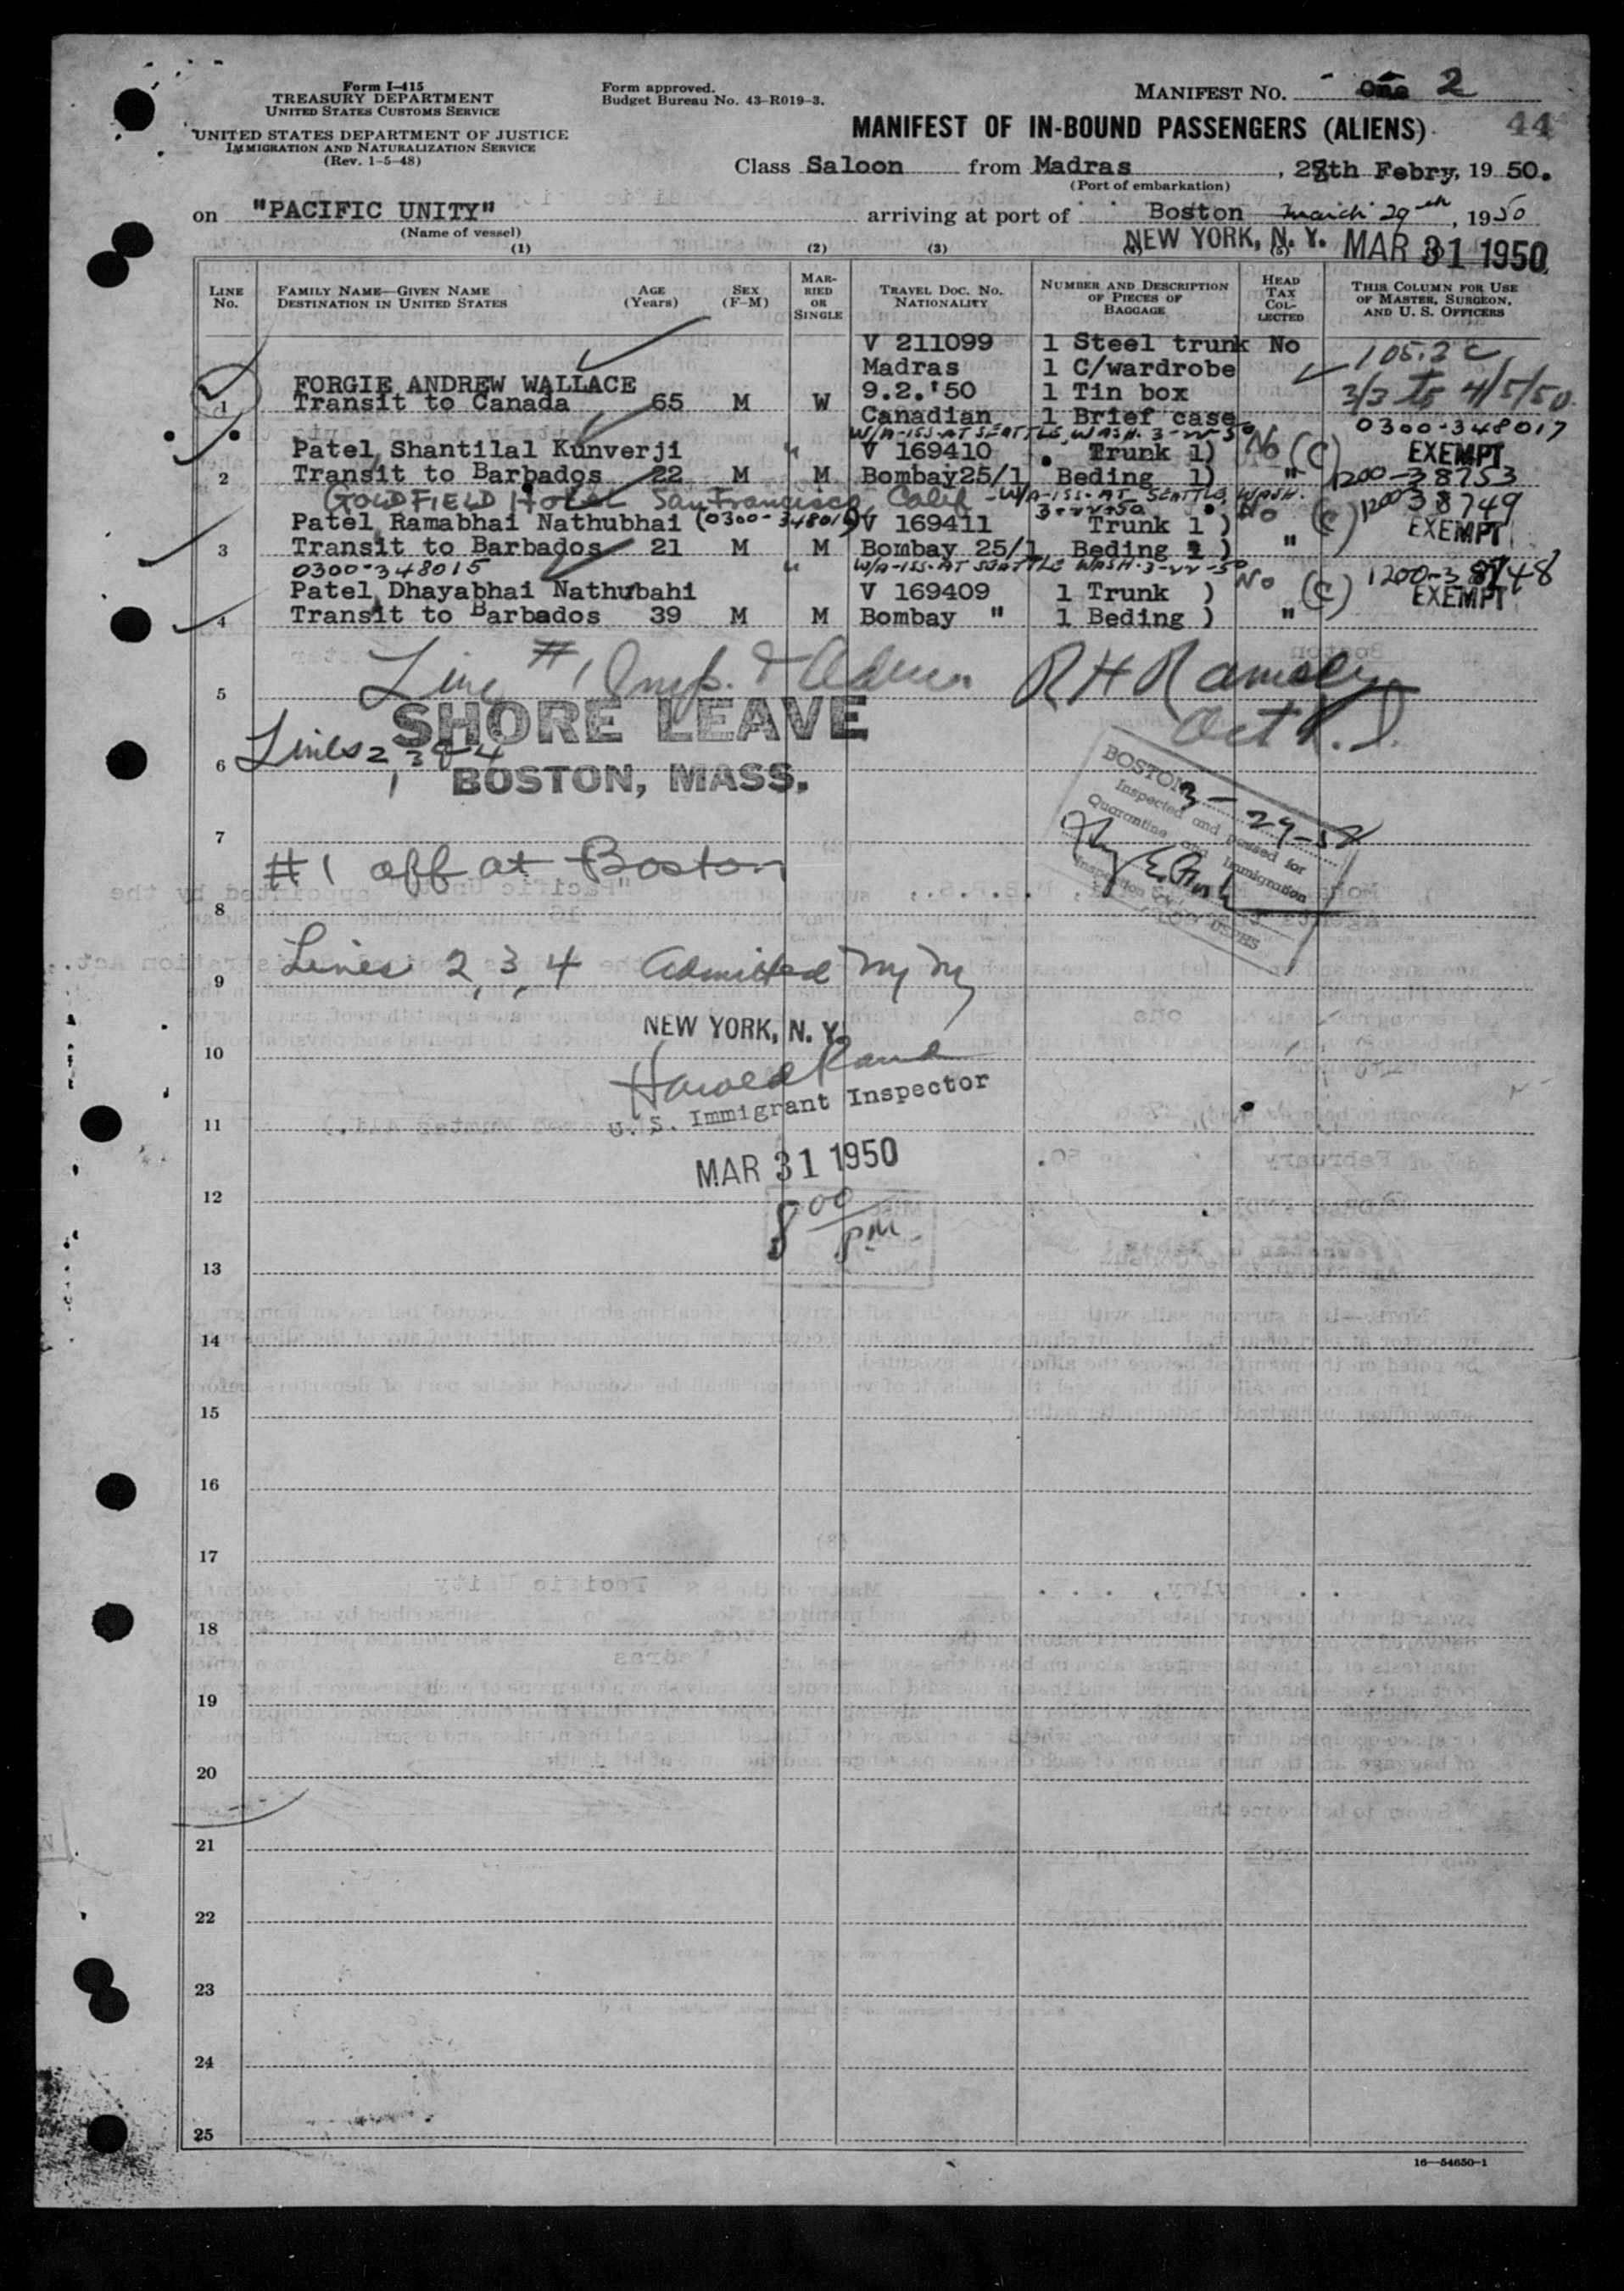 Form I-415
TREASURY DEPARTMENT
UNITED STATES CUSTOMS SERVICE
UNITED STATES DEPARTMENT OF JUSTICE
IMMIGRATION AND NATURALIZATION SERVICE
(Rev. 1-5-48)
Form approved.
Budget Bureau No. 43-R019-3.
MANIFEST NO. One 2
MANIFEST OF IN-BOUND PASSENGERS (ALIENS) 44
Class Saloon from Madras, 28th Febry, 1950.
(Port of embarkation)
on "PACIFIC UNITY" arriving at port of Boston March 29th, 1950
(Name of vessel)
NEW YORK, N. Y. MAR 31 1950
(1) (2) (3) (4) (5)
LINE No. FAMILY NAME—GIVEN NAME DESTINATION IN UNITED STATES AGE (Years) SEX (F-M) MARRIED OR SINGLE TRAVEL DOC. NO. NATIONALITY NUMBER AND DESCRIPTION OF PIECES OF BAGGAGE HEAD TAX COLLECTED THIS COLUMN FOR USE OF MASTER, SURGEON, AND U. S. OFFICERS
V 211099 1 Steel trunk No
Madras 1 C/wardrobe 105.2 C
FORGIE ANDREW WALLACE 9.2.'50 1 Tin box 3/3 to 4/5/50
1 Transit to Canada 65 M W Canadian 1 Brief case
W/A-ISS-AT SEATTLE, WASH. 3-22-50 0300-348017
Patel Shantilal Kunverji V 169410 Trunk 1) No (C) EXEMPT
2 Transit to Barbados 22 M M Bombay25/1 Beding 1) " 1200-38753
GOLDFIELD Hotel San Francisco, Calif - W/A-ISS-AT SEATTLE, WASH. 3-22-50 1200-38749
Patel Ramabhai Nathubhai (0300-348016) V 169411 Trunk 1 ) No (C) EXEMPT
3 Transit to Barbados 21 M M Bombay 25/1 Beding 1 ) "
0300-348015 W/A-ISS-AT SEATTLE WASH. 3-22-50 1200-38748
Patel Dhayabhai Nathubahi V 169409 1 Trunk ) No (C) EXEMPT
4 Transit to Barbados 39 M M Bombay " 1 Beding ) "
5 Line #1 Insp. & Adm. R H Ramsey
SHORE LEAVE
6 Lines 2, 3 & 4
BOSTON, MASS.
BOSTON 3-29-50
Inspected and passed for
Quarantine and Immigration
USPHS
7
#1 off at Boston
8
9 Lines 2, 3, 4 Admitted NY NY
NEW YORK, N. Y.
10
Harold Rand
11 U. S. Immigrant Inspector
MAR 31 1950
12
8 00 PM
13
14
15
16
17
18
19
20
21
22
23
24
25
16—54650-1